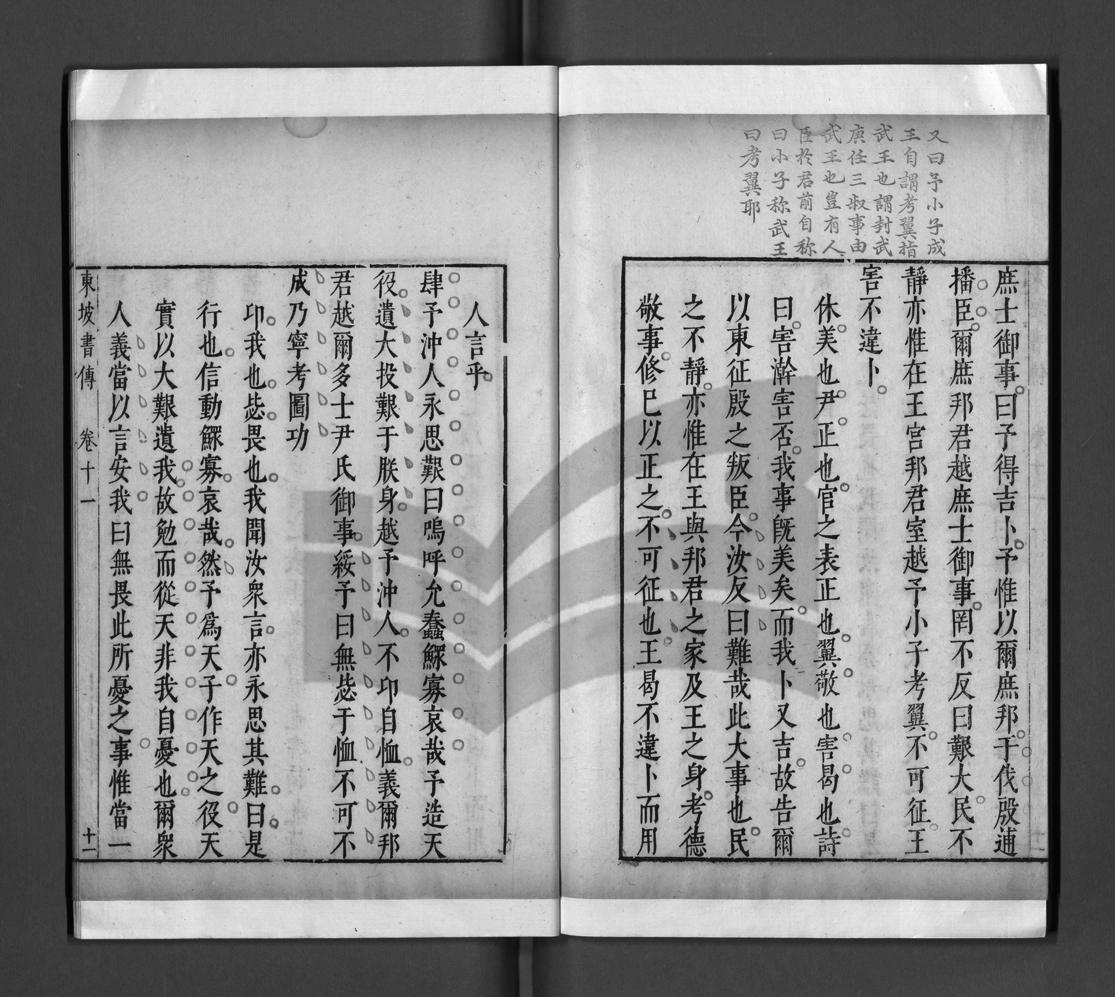 又曰予小子成
王自謂考翼指
武王也謂封武
庚任三叔事由
武王也豈有人
臣於君前自称
曰小子称武王
曰考翼耶
庶士御事曰予得吉卜予惟以爾庶邦于伐殷逋
播臣爾庶邦君越庶士御事罔不反曰艱大民不
靜亦惟在王宮邦君室越予小子考翼不可征王
害不違卜
休美也尹正也官之表正也翼敬也害曷也詩
曰害澣害否我事旣美矣而我卜又吉故告爾
以東征殷之叛臣今汝反曰難哉此大事也民
之不靜亦惟在王與邦君之家及王之身考德
敬事修己以正之不可征也王曷不違卜而用
人言乎
肆予沖人永思艱曰嗚呼允蠢鰥寡哀哉予造天
役遺大投艱于朕身越予沖人不卬自恤義爾邦
君越爾多士尹氏御事綏予曰無毖于恤不可不
成乃寧考圖功
卬我也毖畏也我聞汝衆言亦永思其難曰是
行也信動鰥寡哀哉然予爲天子作天之役天
實以大艱遺我故勉而從天非我自憂也爾衆
人義當以言安我曰無畏此所憂之事惟當一
東坡書傳 卷十一 十二